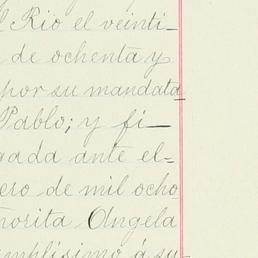 l Rio el veinti-
de ochenta y
por su mandata
Pablo; y fi-
gada ante el-
ero de mil ocho
ñorita Angela
amplísimo á su-